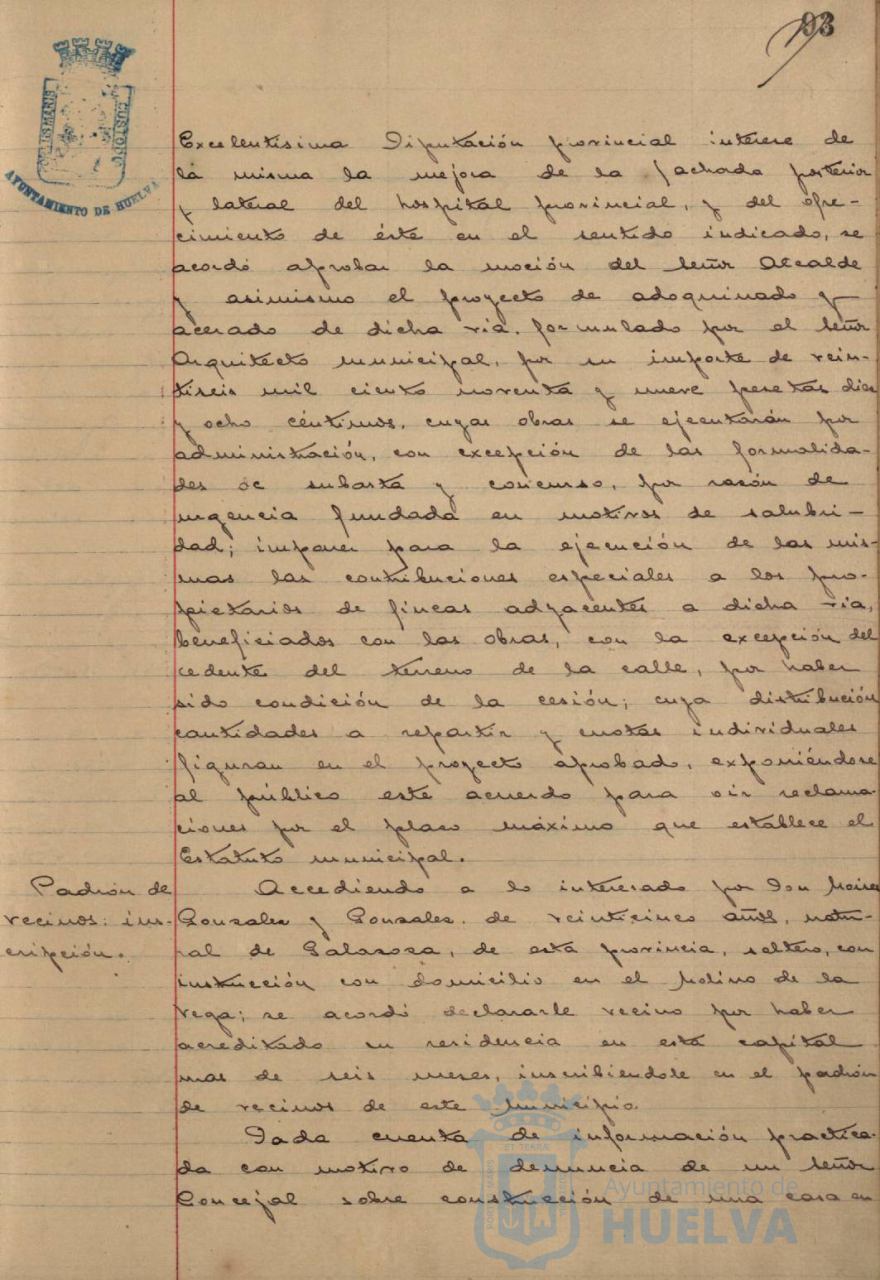 93
AYUNTAMIENTO DE HUELVA
Excelentísima Diputación provincial interese de
la misma la mejora de la fachada posterior
y lateral del hospital provincial, y del ofre-
cimiento de éste en el sentido indicado, se
acordó aprobar la moción del Señor Alcalde
y asimismo el proyecto de adoquinado y
acerado de dicha vía. formulado por el Señor
Arquitecto municipal, por su importe de vein-
tiseis mil ciento noventa y nueve pesetas diez
y ocho céntimos, cuyas obras se ejecutarán por
administración, con excepción de las formalida-
des de subasta y concurso, por razón de
urgencia fundada en motivos de salubri-
dad; imponer para la ejecución de las mis-
mas las contribuciones especiales a los pro-
pietarios de fincas adyacentes a dicha vía,
beneficiados con las obras, con la excepción del
cedente del terreno de la calle, por haber
sido condición de la cesión; cuya distribución
cantidades a repartir y cuotas individuales
figuran en el proyecto aprobado, exponiéndose
al público este acuerdo para oir reclama-
ciones por el plazo máximo que establece el
Estatuto municipal.
Padrón de
vecinos: ins-
cripción.
Accediendo a lo interesado por Don Moises
Gonzalez y Gonzalez. de veinticinco años, natu-
ral de Galaroza, de esta provincia, soltero, con
instrucción con domicilio en el Molino de la
Vega; se acordó declararle vecino por haber
acreditado su residencia en esta capital
mas de seis meses, inscribiendole en el padrón
de vecinos de este Municipio.
Dada cuenta de información practica-
da con motivo de denuncia de un Señor
Concejal sobre construcción de una casa en
Ayuntamiento de
HUELVA